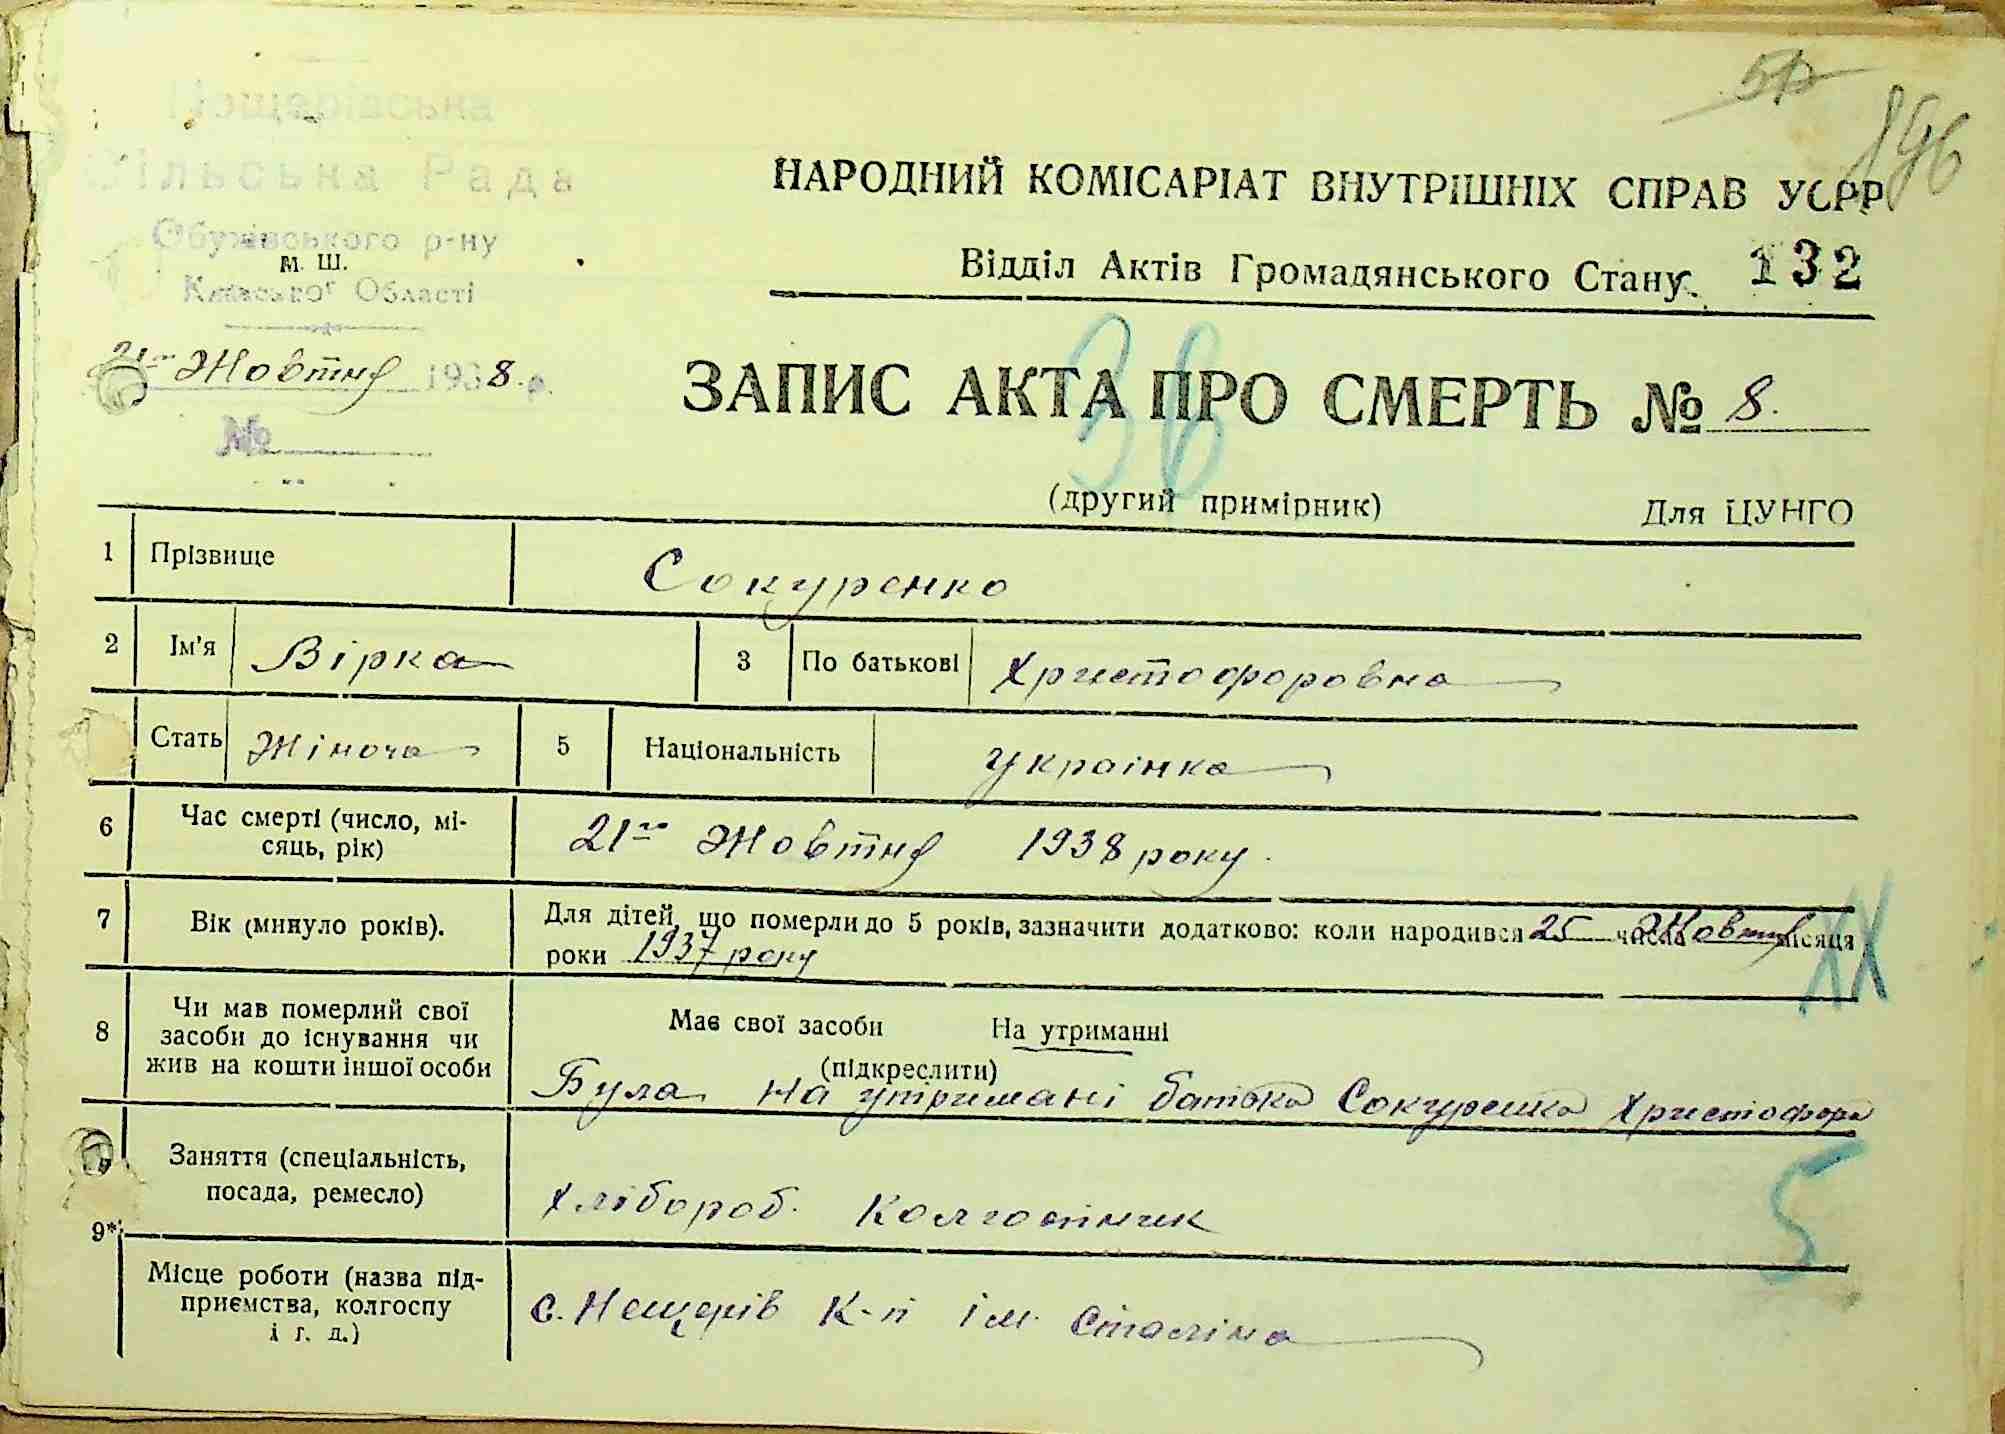 Нещерівська
Сільська Рада
Обухівського р-ну
м. ш.
Київської Області
21го Жовтня 1938 р.
№
196
НАРОДНИЙ КОМІСАРІАТ ВНУТРІШНІХ СПРАВ УСРР
Відділ Актів Громадянського Стану. 132
36
ЗАПИС АКТА ПРО СМЕРТЬ № 8.
(другий примірник) Для ЦУНГО
1 Прізвище Сокуренко
2 Ім'я Вірка 3 По батькові Христофоровна
Стать Жіноча 5 Національність Украінка
6 Час смерті (число, мі-
сяць, рік) 21го Жовтня 1938 року.
7 Вік (минуло років). Для дітей, що померли до 5 років, зазначити додатково: коли народився 25 числа Жовтня місяця
роки 1937 року
XX
8 Чи мав померлий свої
засоби до існування чи
жив на кошти іншої особи
Має свої засоби На утриманні
(підкреслити)
Була на утримані батька Сокуренка Христофора
9*)
Заняття (спеціальність,
посада, ремесло) Хлібороб. Колгоспник
5
Місце роботи (назва під-
приємства, колгоспу
і т. д.) с. Нещерів К-п ім. Сталіна